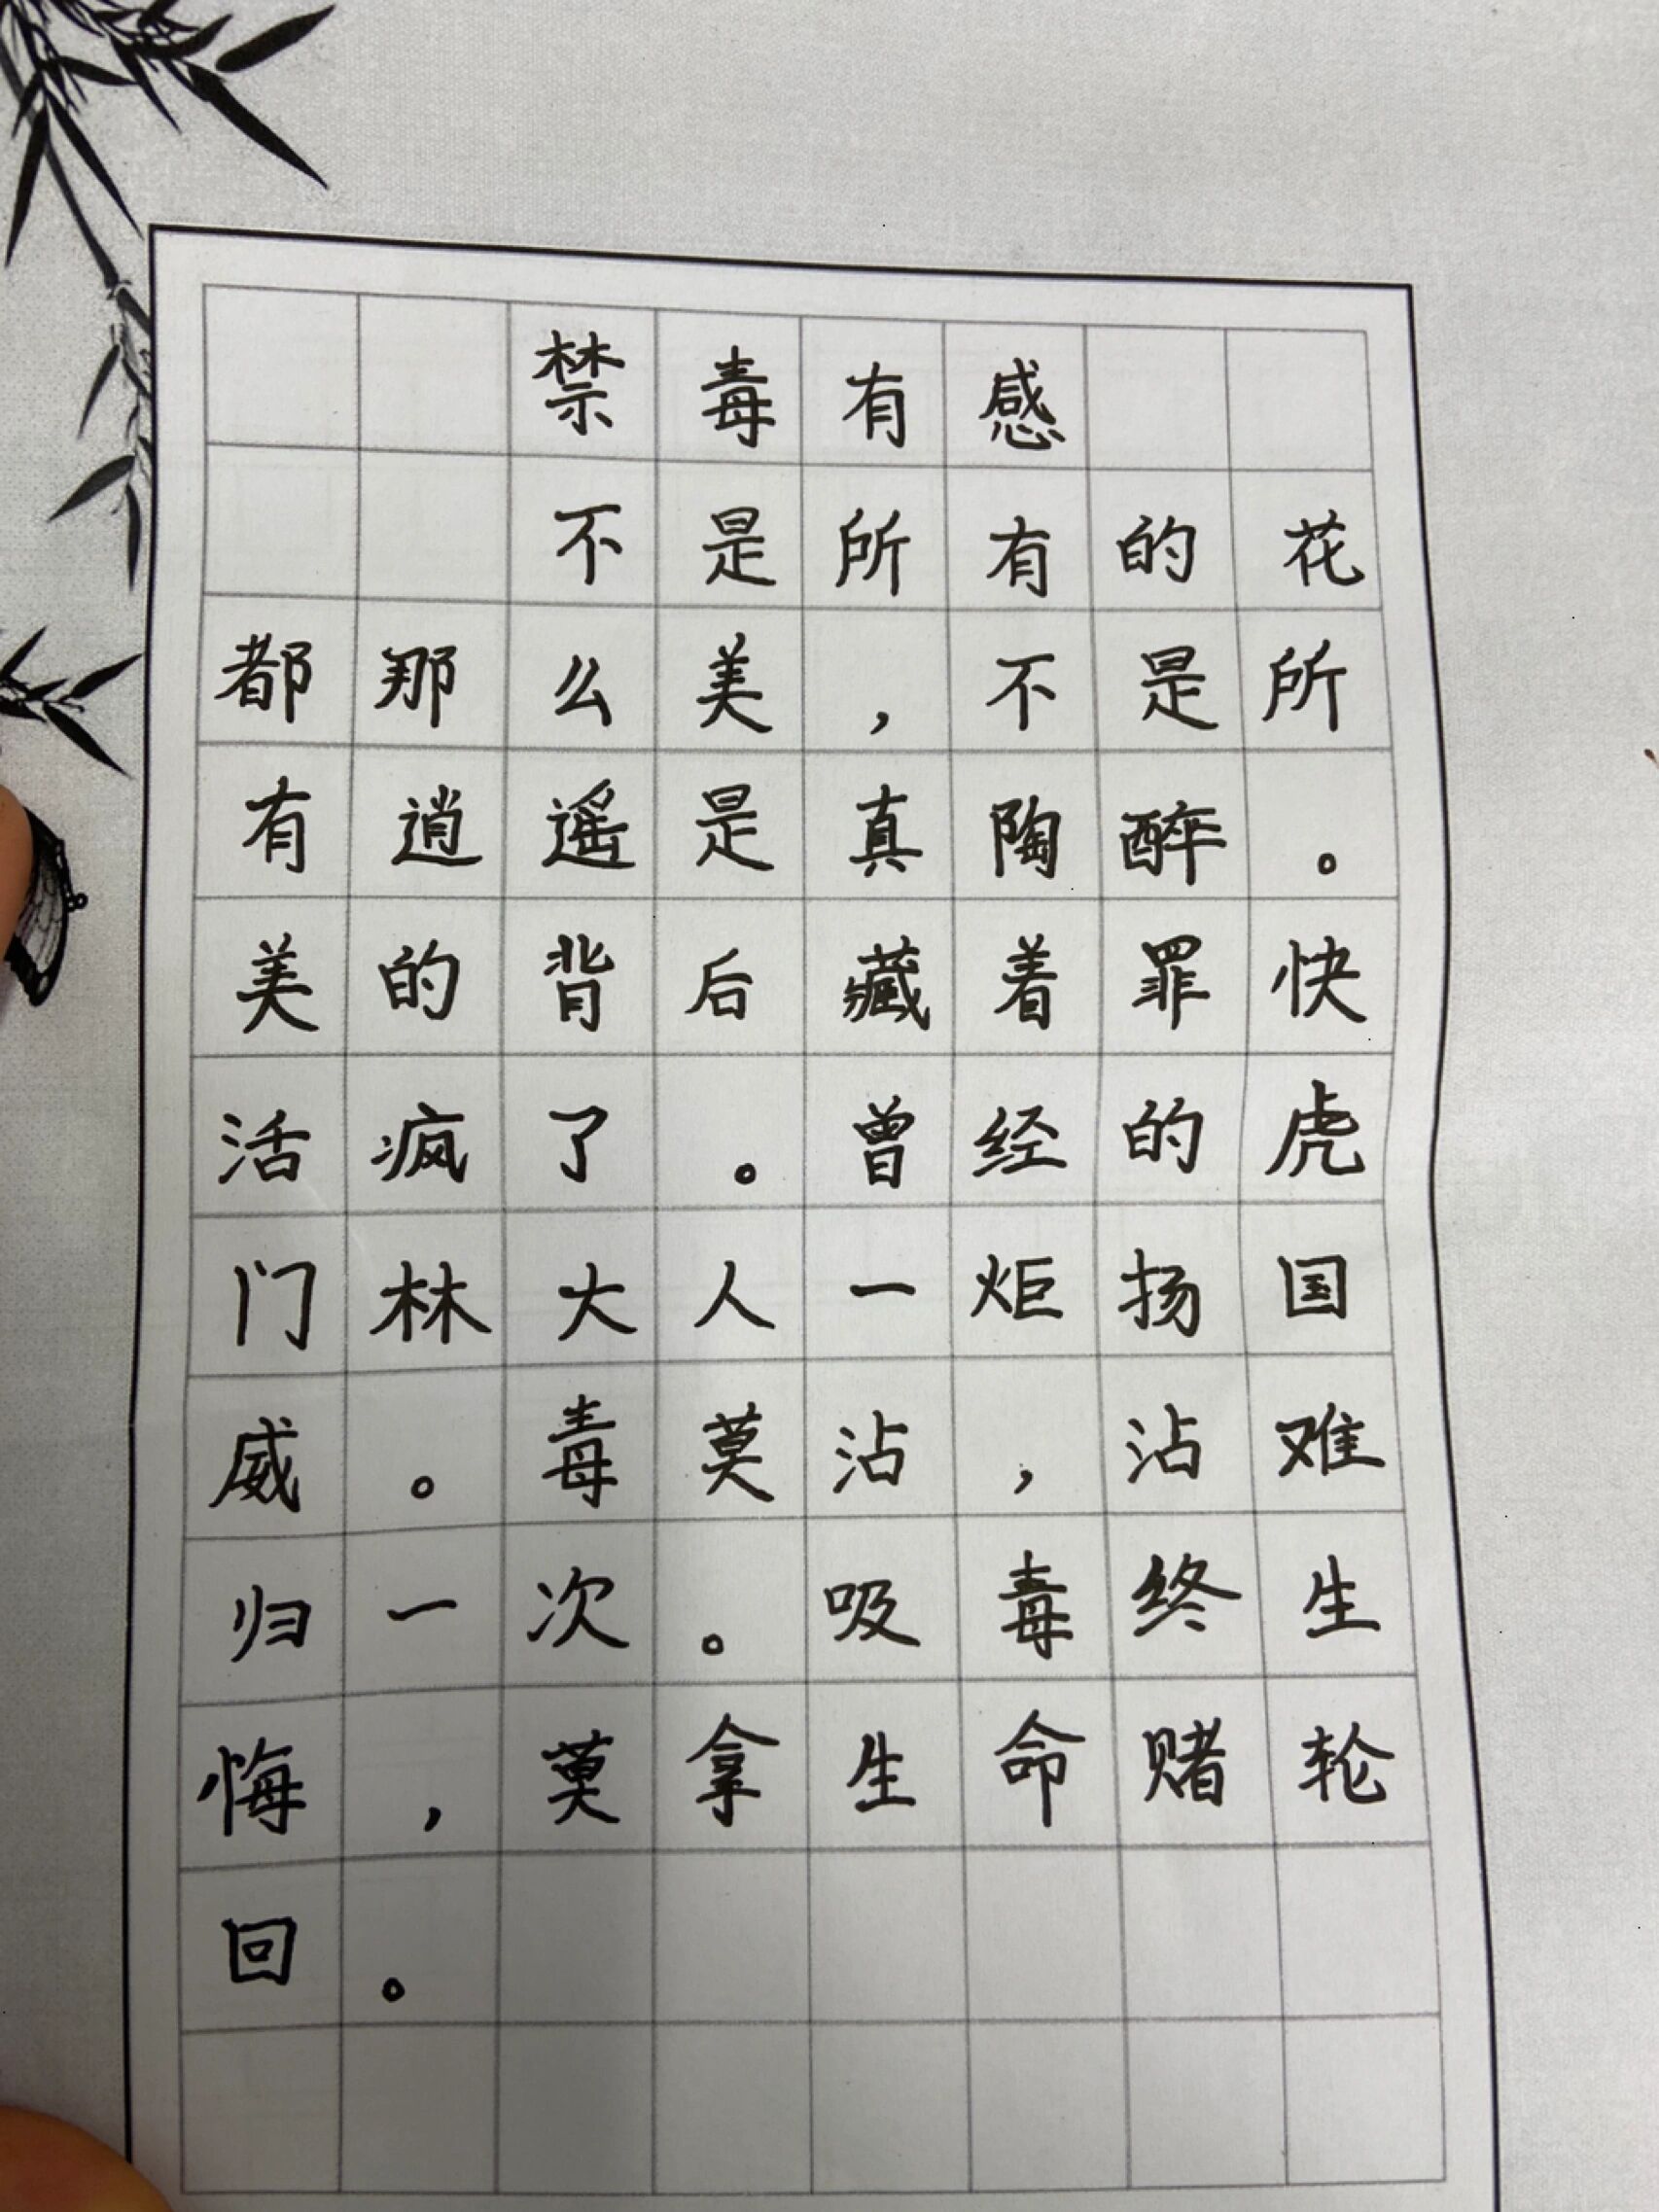 禁毒有感
不是所有的花
都那么美，不是所
有逍遥是真陶醉。
美的背后藏着罪快
活疯了。曾经的虎
门林大人一炬扬国
威。毒莫沾，沾难
归一次。吸毒终生
悔，莫拿生命赌轮
回。